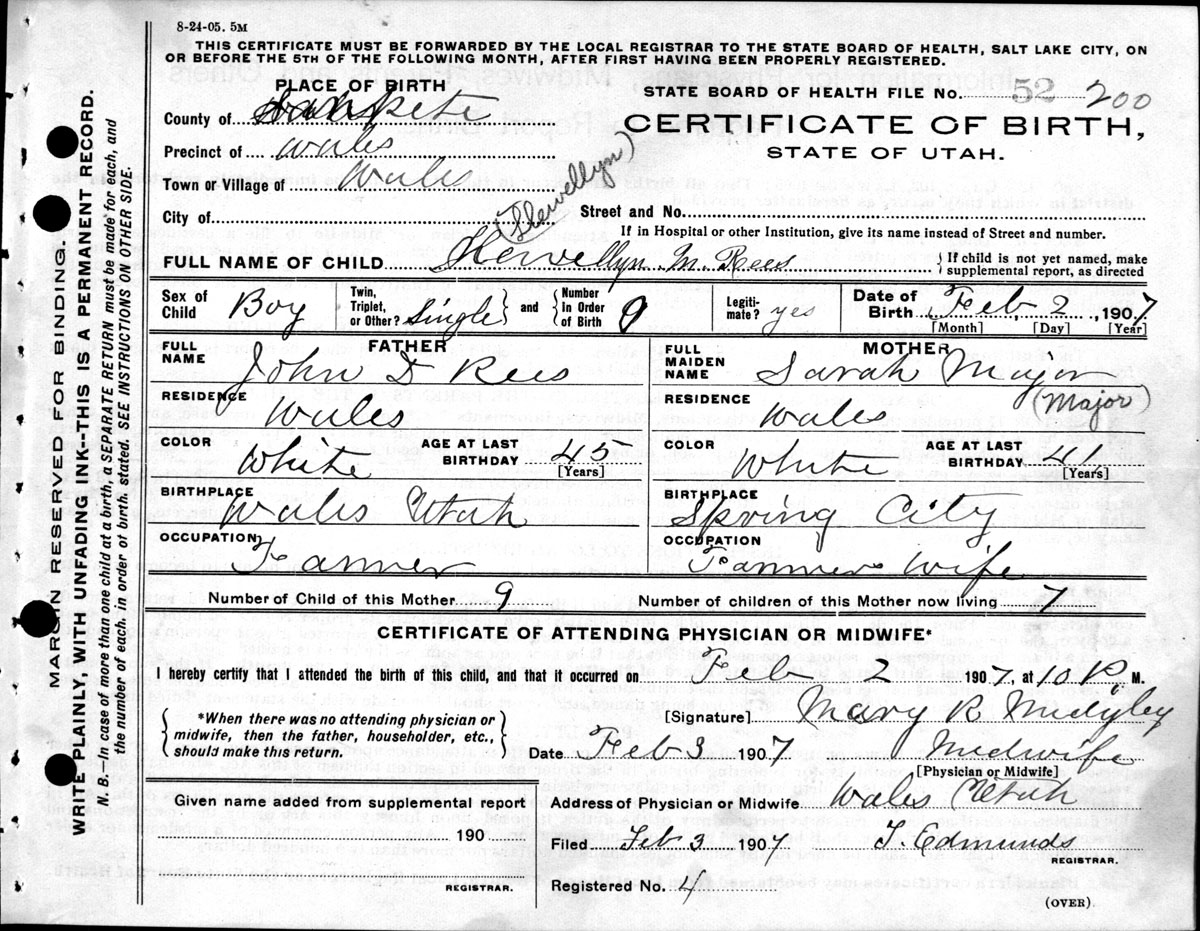 8-24-05. 5M
THIS CERTIFICATE MUST BE FORWARDED BY THE LOCAL REGISTRAR TO THE STATE BOARD OF HEALTH, SALT LAKE CITY, ON
OR BEFORE THE 5TH OF THE FOLLOWING MONTH, AFTER FIRST HAVING BEEN PROPERLY REGISTERED.
PLACE OF BIRTH
STATE BOARD OF HEALTH FILE No. 52 200
County of Sanpete
CERTIFICATE OF BIRTH,
STATE OF UTAH.
Precinct of Wales
Town or Village of Wales
City of
(Llewellyn)
Street and No.
If in Hospital or other Institution, give its name instead of Street and number.
FULL NAME OF CHILD Llewellyn M. Rees
{If child is not yet named, make
supplemental report, as directed
Sex of Child Boy
Twin, Triplet, or Other? Single and Number In Order of Birth 9
Legiti-mate? yes
Date of Birth Feb 2, 1907
[Month] [Day] [Year]
FATHER
FULL NAME John D Rees
RESIDENCE Wales
COLOR White
AGE AT LAST BIRTHDAY 45
[Years]
BIRTHPLACE Wales Utah
OCCUPATION Farmer
MOTHER
FULL MAIDEN NAME Sarah Major
RESIDENCE Wales (Major)
COLOR White
AGE AT LAST BIRTHDAY 41
[Years]
BIRTHPLACE Spring City
OCCUPATION Farmers Wife
Number of Child of this Mother 9
Number of children of this Mother now living 7
CERTIFICATE OF ATTENDING PHYSICIAN OR MIDWIFE*
I hereby certify that I attended the birth of this child, and that it occurred on Feb 2 1907, at 10 P. M.
{*When there was no attending physician or
midwife, then the father, householder, etc.,
should make this return.}
[Signature] Mary R Midgley
Date Feb 3 1907 Midwife
[Physician or Midwife]
Given name added from supplemental report
190
REGISTRAR.
Address of Physician or Midwife Wales Utah
Filed Feb 3 1907 T. Edmunds
REGISTRAR.
Registered No. 4
(OVER)
MARGIN RESERVED FOR BINDING.
WRITE PLAINLY, WITH UNFADING INK--THIS IS A PERMANENT RECORD.
N. B.—In case of more than one child at a birth, a SEPARATE RETURN must be made for each, and
the number of each, in order of birth, stated. SEE INSTRUCTIONS ON OTHER SIDE.